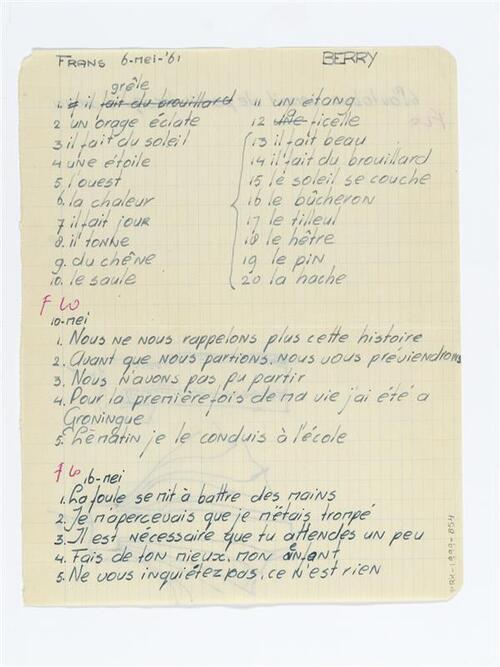 FRANS 6-mei-'61 BERRY
grêle
1. il fait du brouillard
2 un orage éclate
3 il fait du soleil
4 une étoile
5. l'ouest
6. la chaleur
7 il fait jour
8. il tonne
9. du chêne
10. le saule
11 un étang
12 une ficelle
13 il fait beau
14 il fait du brouillard
15 le soleil se couche
16 le bûcheron
17 le tilleul
18 le hêtre
19 le pin
20 la hache
10-mei
1. Nous ne nous rappelons plus cette histoire
2. Avant que nous partions, nous vous préviendrons
3. Nous n'avons pas pu partir
4. Pour la première fois de ma vie j'ai été a
Groningue
5. Le matin je le conduis à l'école
16-mei
1. La foule se mit à battre des mains
2. Je m'apercevais que je m'étais trompé
3. Il est nécessaire que tu attendes un peu
4. Fais de ton mieux, mon enfant
5. Ne vous inquiétez pas, ce n'est rien
PRK-1999-854